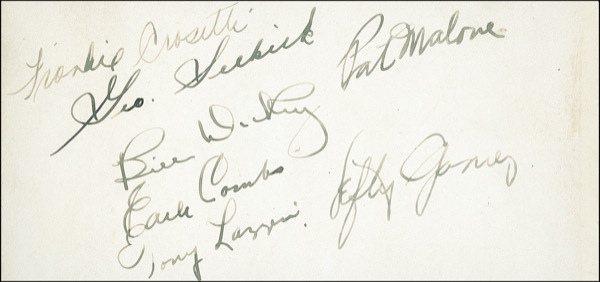 Frankie Crosetti
Geo. Selkirk
Pat Malone
Bill Dickey
Earle Combs
Lefty Gomez
Tony Lazzeri